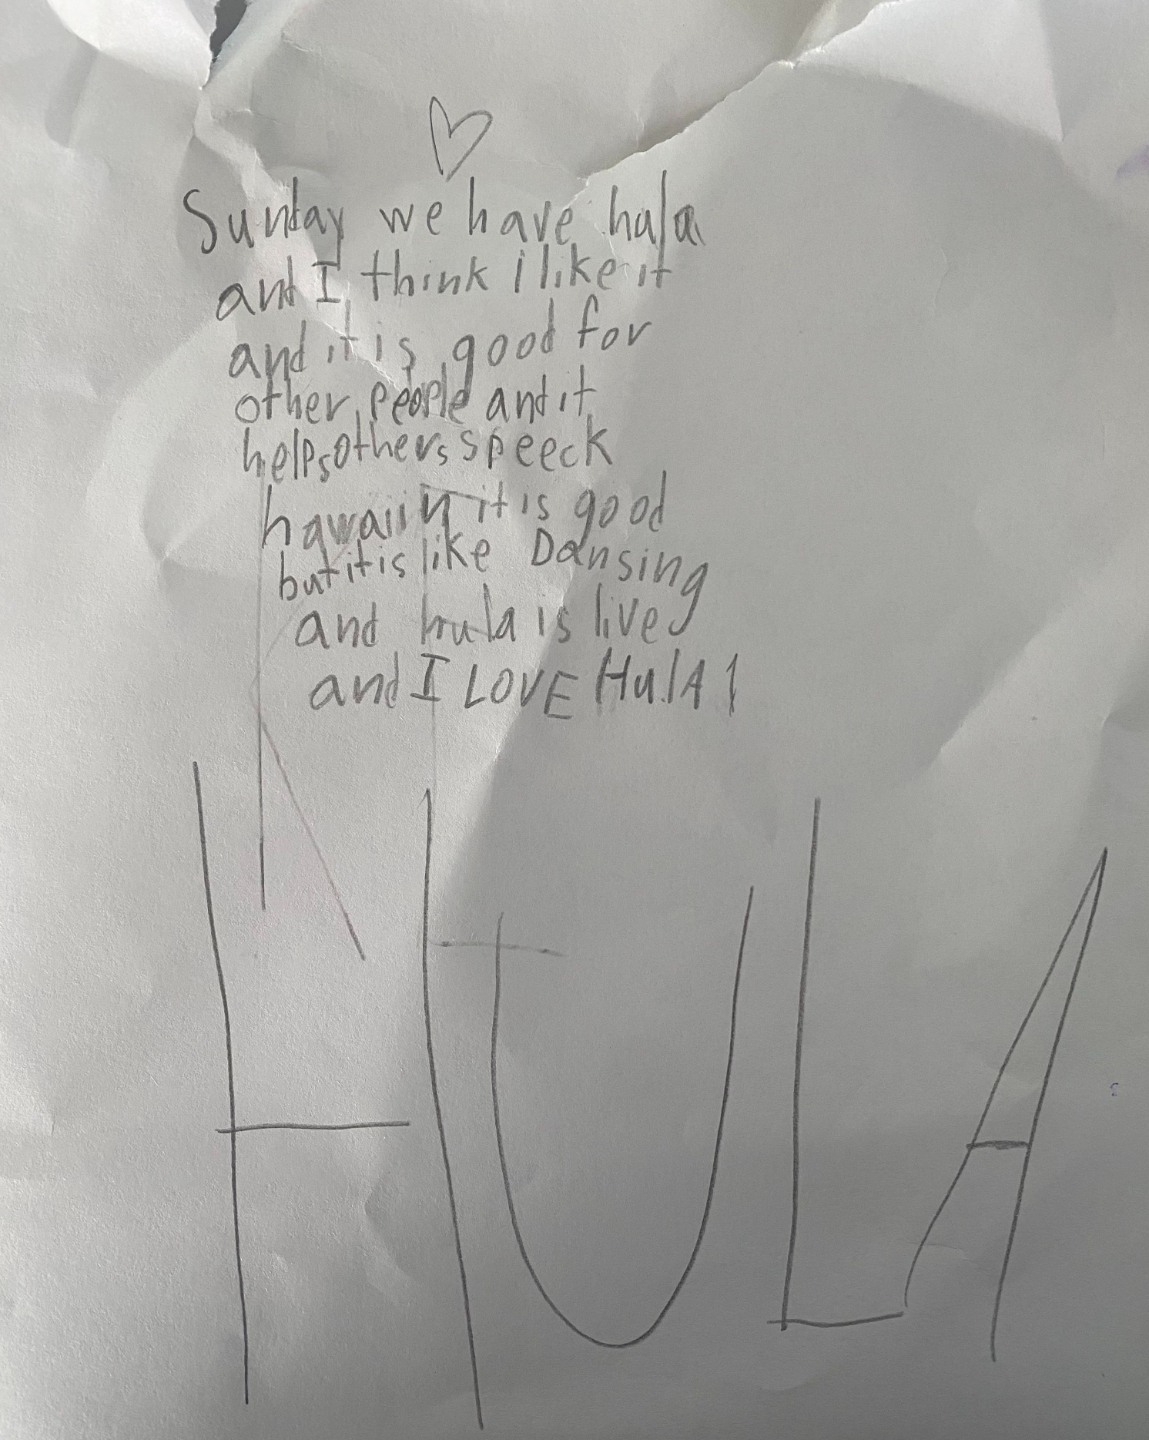 Sunday we have hula
and I think i like it
and it is good for
other people and it
helps others speeck
hawaiin it is good
but it is like Dansing
and hula is live
and I LOVE HulA!
HULA